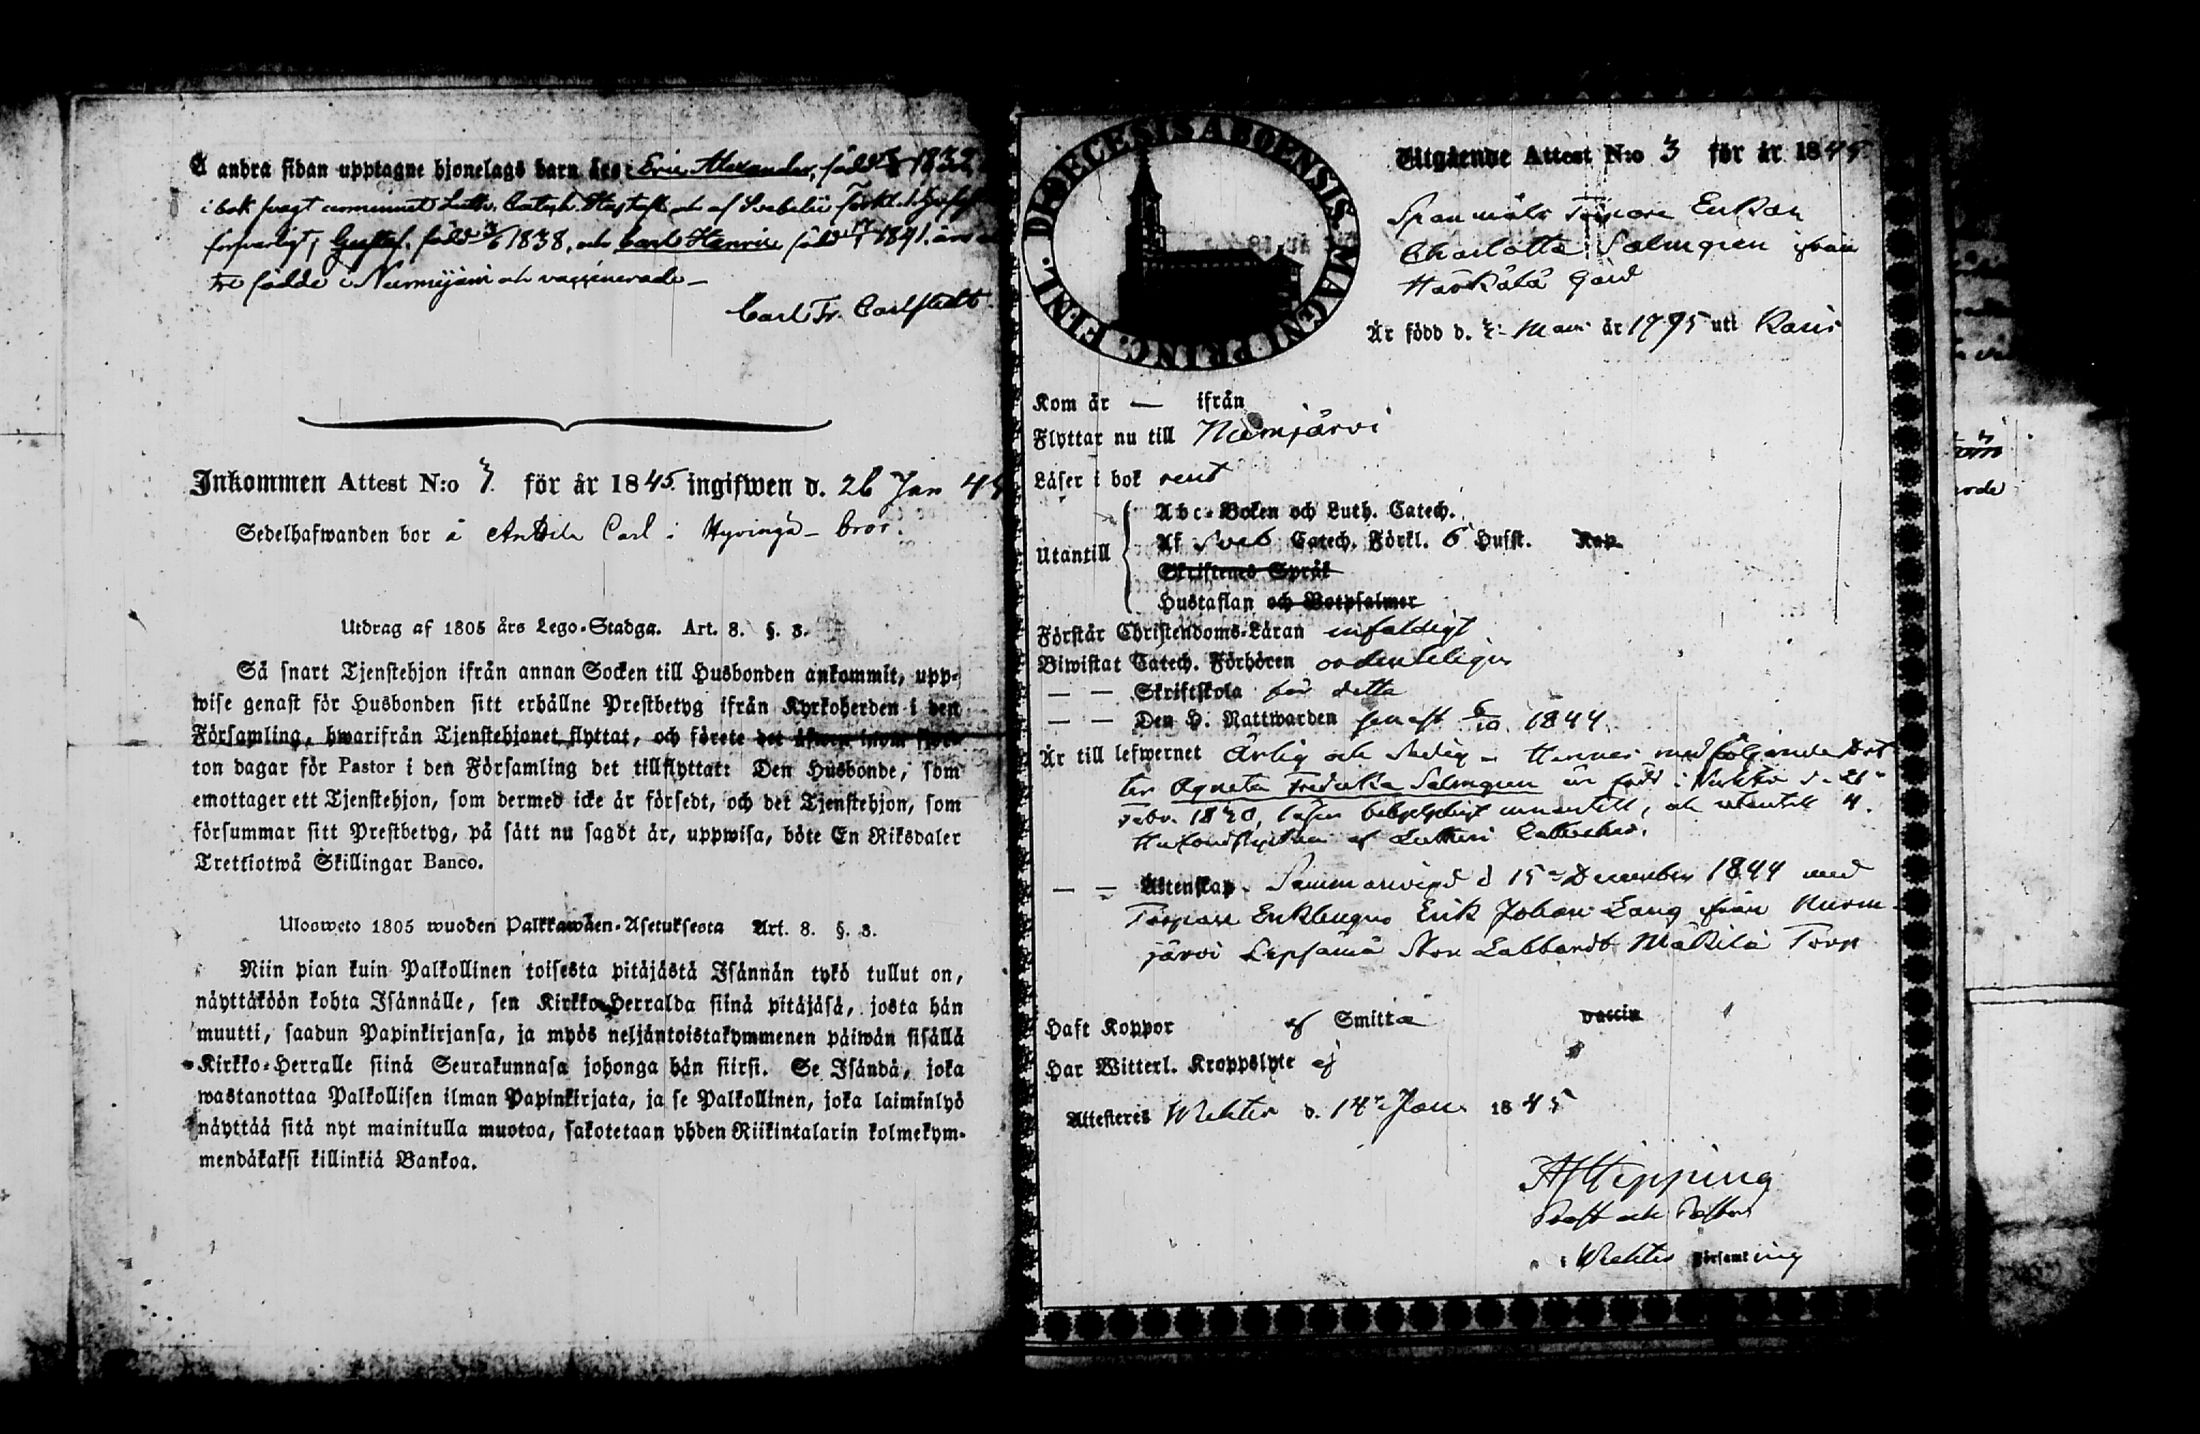 Å andra sidan upptagne hjonelags barn äro: Eric Alexander, född 1832
i bok svagt Luth. Catech. Hustafl. och af Svebelii Förkl.
försvarligt, Gustaf, född 1838, och Carl Henric född 1841. äro
tre födde i Nurmijärvi och vaccinerade –
Carl Fr. Carlstedt
Inkommen Attest N:o 7. för år 1845. ingifwen d. 26 Jan 45
Sedelhafwanden bor å Anttila Carl i Hyvingä – bror.
Utdrag af 1805 års Lego-Stadga. Art. 8. §. 3.
Så snart Tjenstehjon ifrån annan Socken till Husbonden ankommit, upp-
wise genast för Husbonden sitt erhållne Prestbetyg ifrån Kyrkoherden i den
Församling, hwarifrån Tjenstehjonet flyttat, och förete det äfwen inom fjor-
ton dagar för Pastor i den Församling det tillflyttat: Den Husbonde, som
emottager ett Tjenstehjon, som dermed icke är försedt, och det Tjenstehjon, som
försummar sitt Prestbetyg, på sätt nu sagdt är, uppwisa, böte En Riksdaler
Trettiotwå Skillingar Banco.
Ulosweto 1805 wuoden Palkkawäen-Asetuksesta Art. 8. §. 3.
Niin pian kuin Palkollinen toisesta pitäjästä Isännän tykö tullut on,
näyttäköön kohta Isännälle, sen Kirkko-Herralda siinä pitäjäsä, josta hän
muutti, saadun Papinkirjansa, ja myös neljäntoistakymmenen päiwän sisällä
Kirkko-Herralle siinä Seurakunnasa johonga hän siirsi. Se Isändä, joka
wastanottaa Palkollisen ilman Papinkirjata, ja se Palkollinen, joka laiminlyö
näyttää sitä nyt mainitulla muotoa, sakotetaan yhden Riikintalarin kolmekym-
mendäkaksi killinkiä Bankoa.
DIOECESIS ABOENSIS. MAGNI PRINC. FINL.
Utgående Attest N:o 3 för år 1845
Spanmåls Torpare Enkan
Charlotta Salmgren ifrån
Härkälä Gård
Är född d. Mars år 1795 uti Karis
Kom år — ifrån
Flyttar nu till Nurmijärvi
Läser i bok rent
Utantill
Abc-Boken och Luth. Catech.
Af Sveb Catech. Förkl. 6 Hufst. Kap.
Skriftenes Språk
Hustaflan och Botpsalmer
Förstår Christendoms-Läran enfaldigt
Biwistat Catech. Förhören ordenteligen
— — Skriftskola för detta
— — Den H. Nattwarden senast 6/10 1844
Är till lefwernet Ärlig och Sedig – Hennes medföljande Dot
ter Agneta Fredrika Salmgren är född i Wichtis d. 21
Febr. 1820, läser innantill, och utantill 4.
Hufvudstycken af Lutheri Cateches.
— — Äktenskap. Sammanvigd d 15 December 1844 med
Torpare Enklingen Erik Johan Lang från Nurm-
järvi Lepsämä Stor Labbards Mäkilä Torp
Haft Koppor ej Smitta vaccin
Har Witterl. Kroppslyte ej
Attesteres Wichtis d. 14 Jan. 1845
AJHipping
Prost och Pastor
i Wichtis Församling